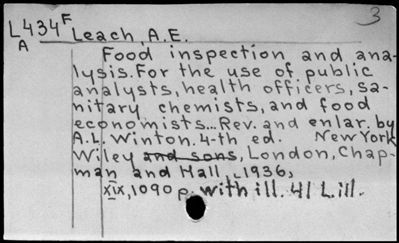 3
L434F Leach, A.E.
A
Food inspection and ana-
lysis. For the use of public
analysts, health officers, sa-
nitary chemists, and food
economists... Rev. and enlar. by
A.L. Winton. 4-th ed. New York
Wiley and sons, London, Chap-
man and Hall, 1936,
XIX, 1090 p. with ill. 41 L.ill.